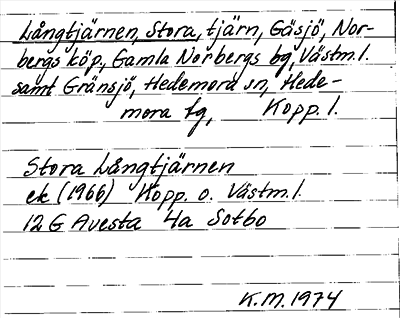 Långtjärnen, Stora, tjärn, Gäsjö, Nor-
bergs köp., Gamla Norbergs bg, Västm.l.
samt Gränsjö, Hedemora sn, Hede-
mora tg, Kopp. l.
Stora Långtjärnen
ek (1966) Kopp. o. Västm.l.
12 G Avesta 4a Sotbo
K.M. 1974